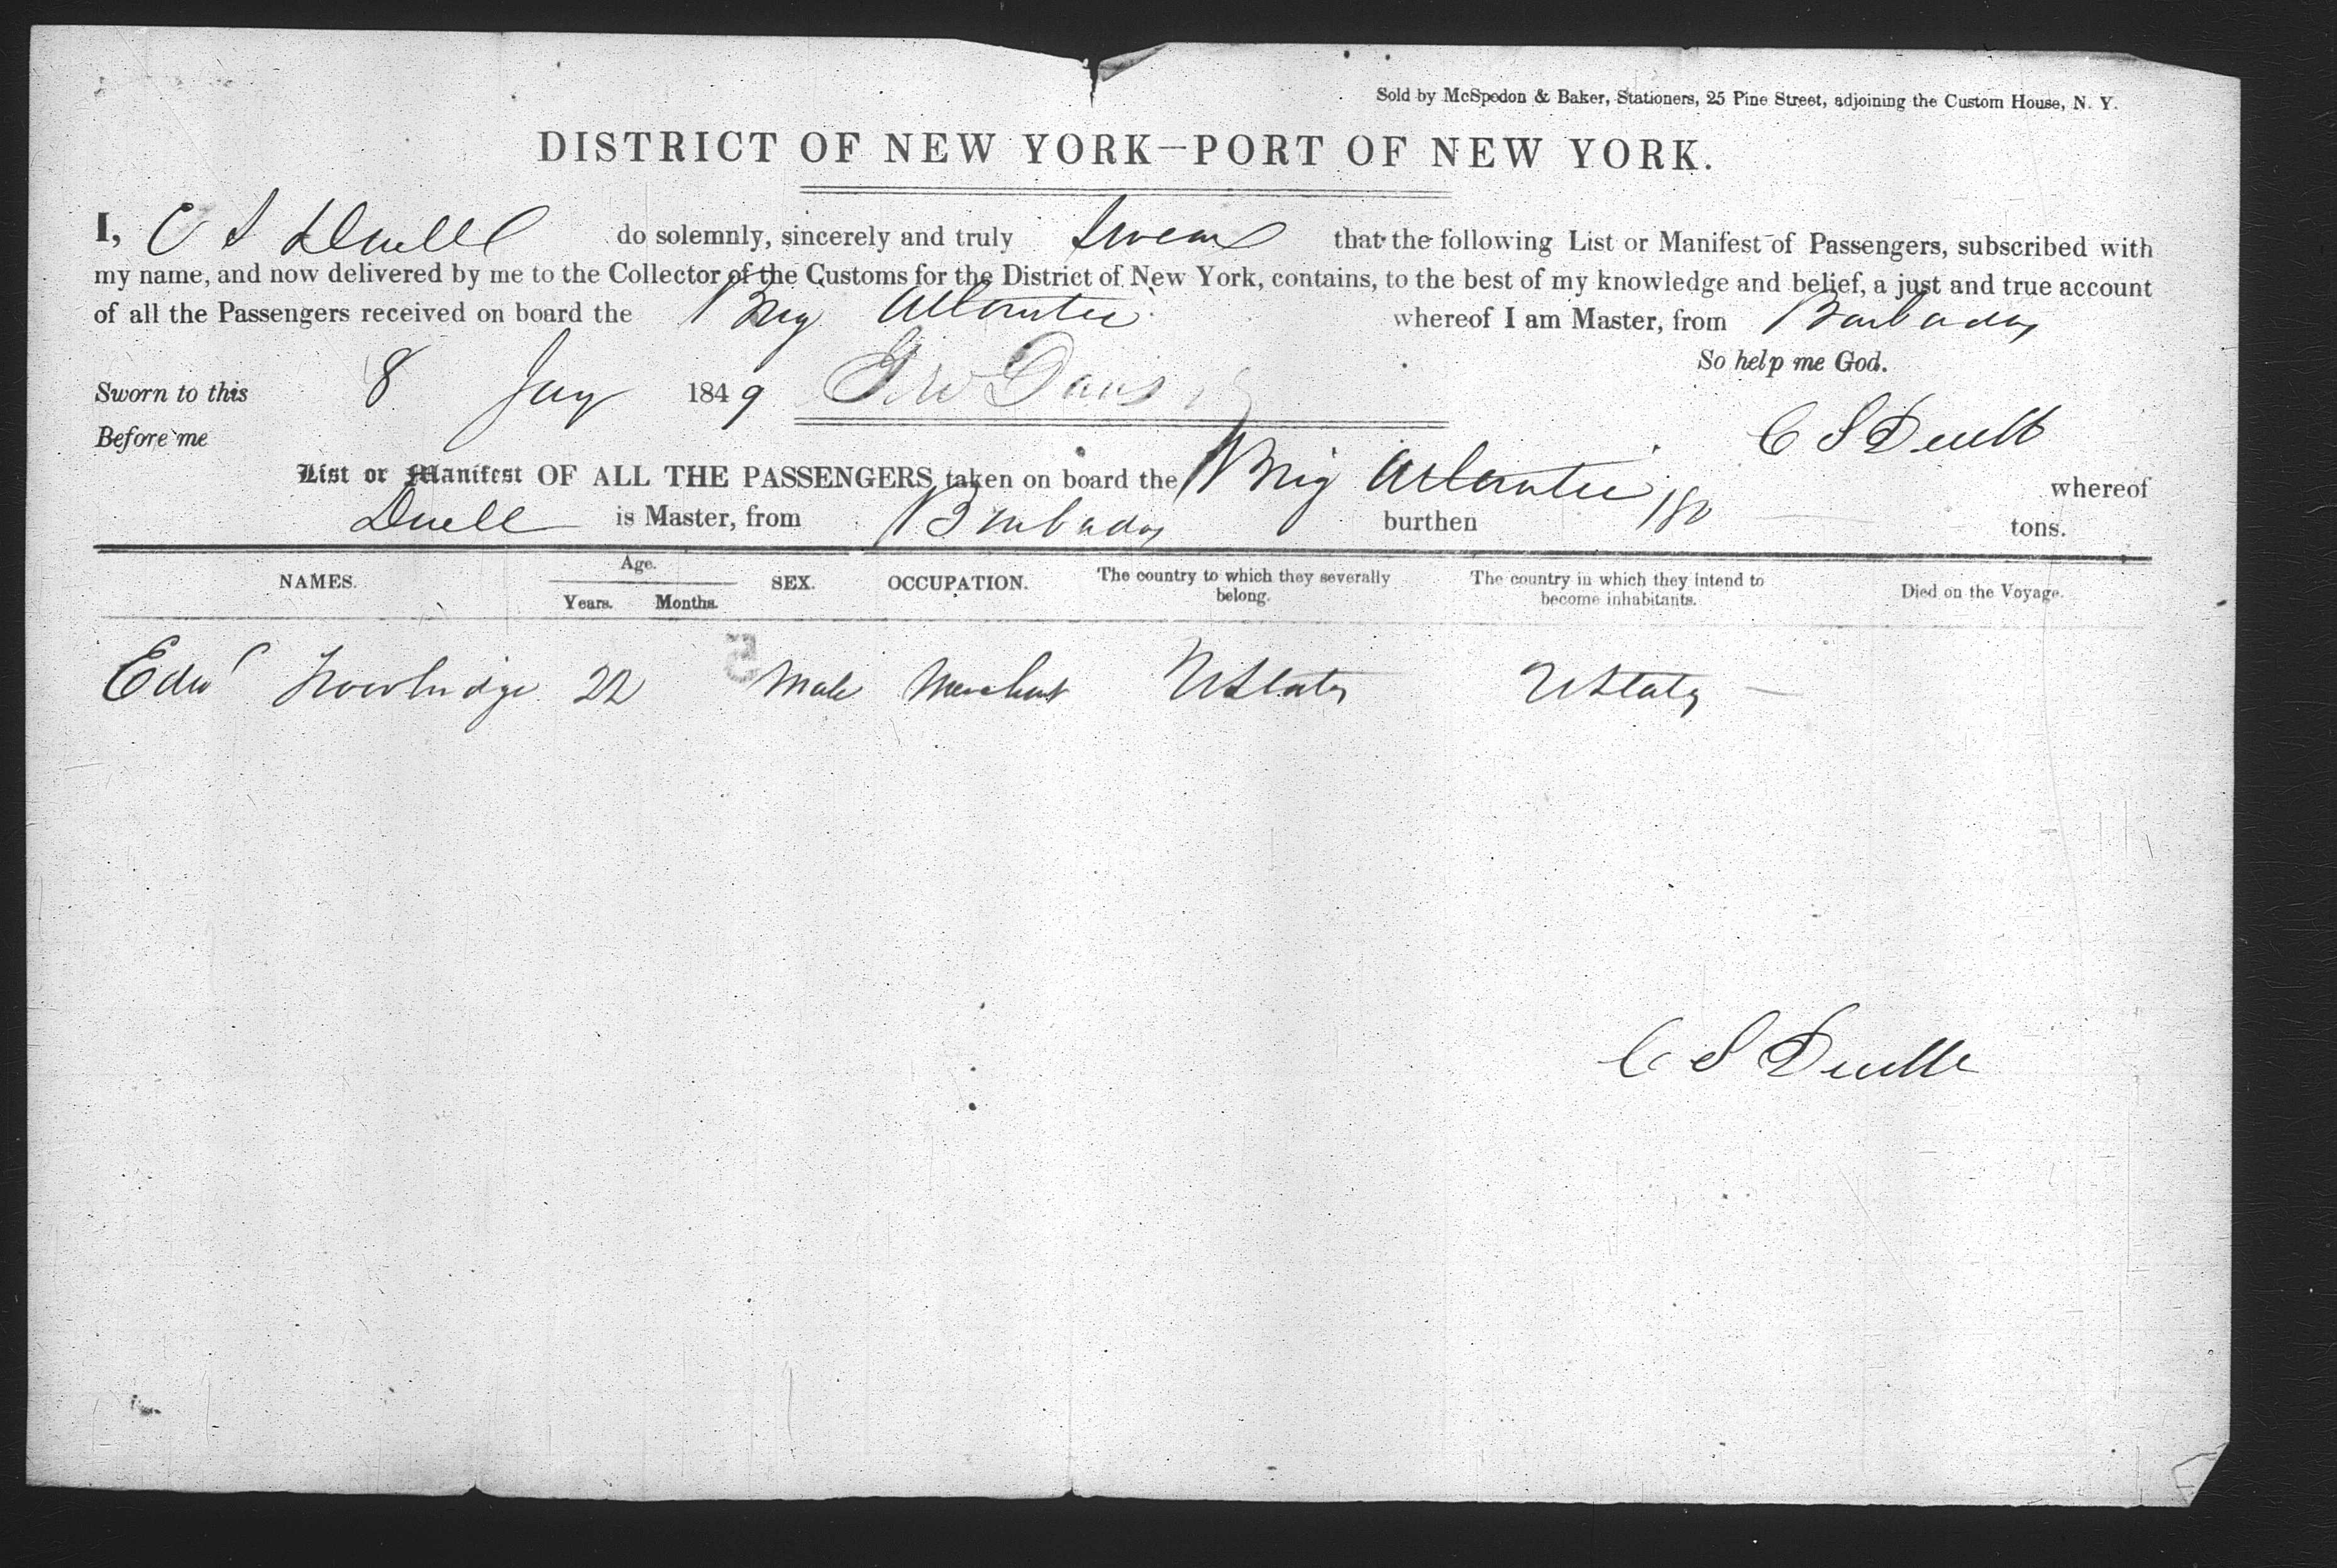 Sold by McSpedon & Baker, Stationers, 25 Pine Street, adjoining the Custom House, N. Y.
DISTRICT OF NEW YORK—PORT OF NEW YORK.
I, C S Duell do solemnly, sincerely and truly Swear that the following List or Manifest of Passengers, subscribed with
my name, and now delivered by me to the Collector of the Customs for the District of New York, contains, to the best of my knowledge and belief, a just and true account
of all the Passengers received on board the Brig Atlantic whereof I am Master, from Barbados
So help me God.
Sworn to this 8 Jany 1849
Before me C S Duell
List or Manifest OF ALL THE PASSENGERS taken on board the Brig Atlantic whereof
Duell is Master, from Barbados burthen 180 tons.
NAMES. Age. Years. Months. SEX. OCCUPATION. The country to which they severally belong. The country in which they intend to become inhabitants. Died on the Voyage.
5
Edwd Trowbridge 22 Male Merchant UStates UStates
C S Duell